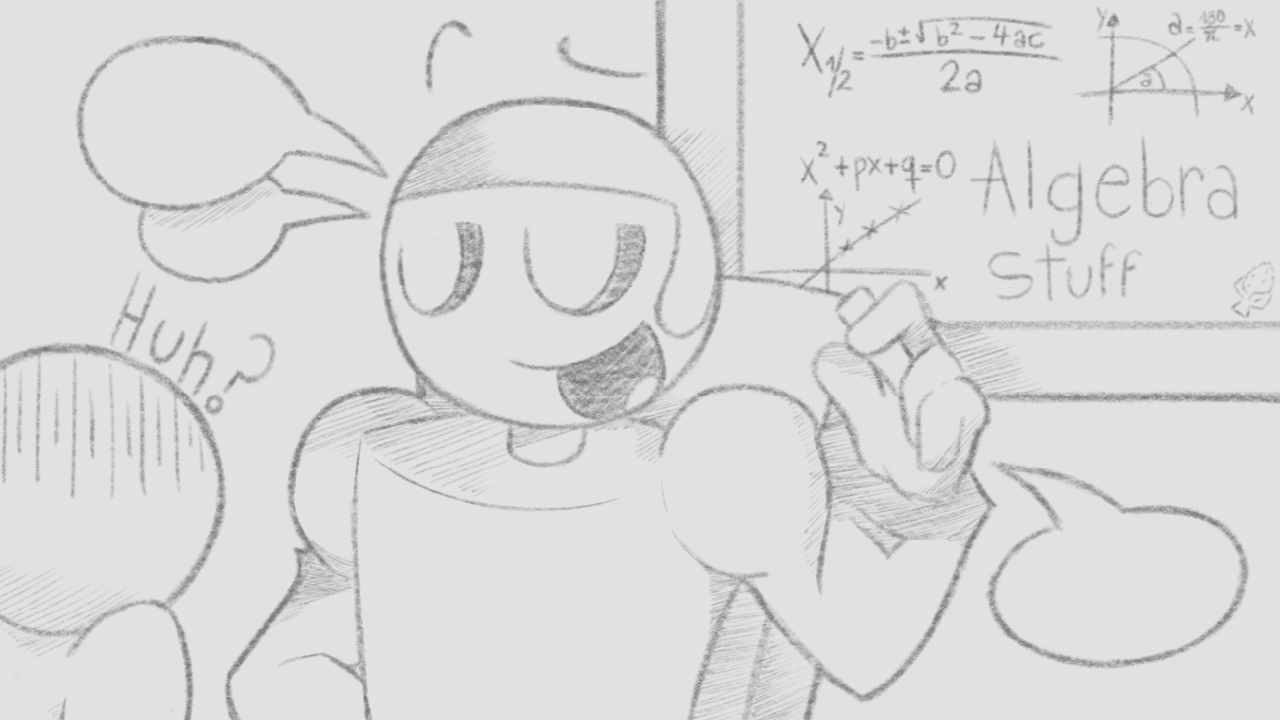 X1/2 = -b±√b² - 4ac / 2a
Y
a = 180/π = X
a
X
x² + px + q = 0
y
x
Algebra
Stuff
Huh?